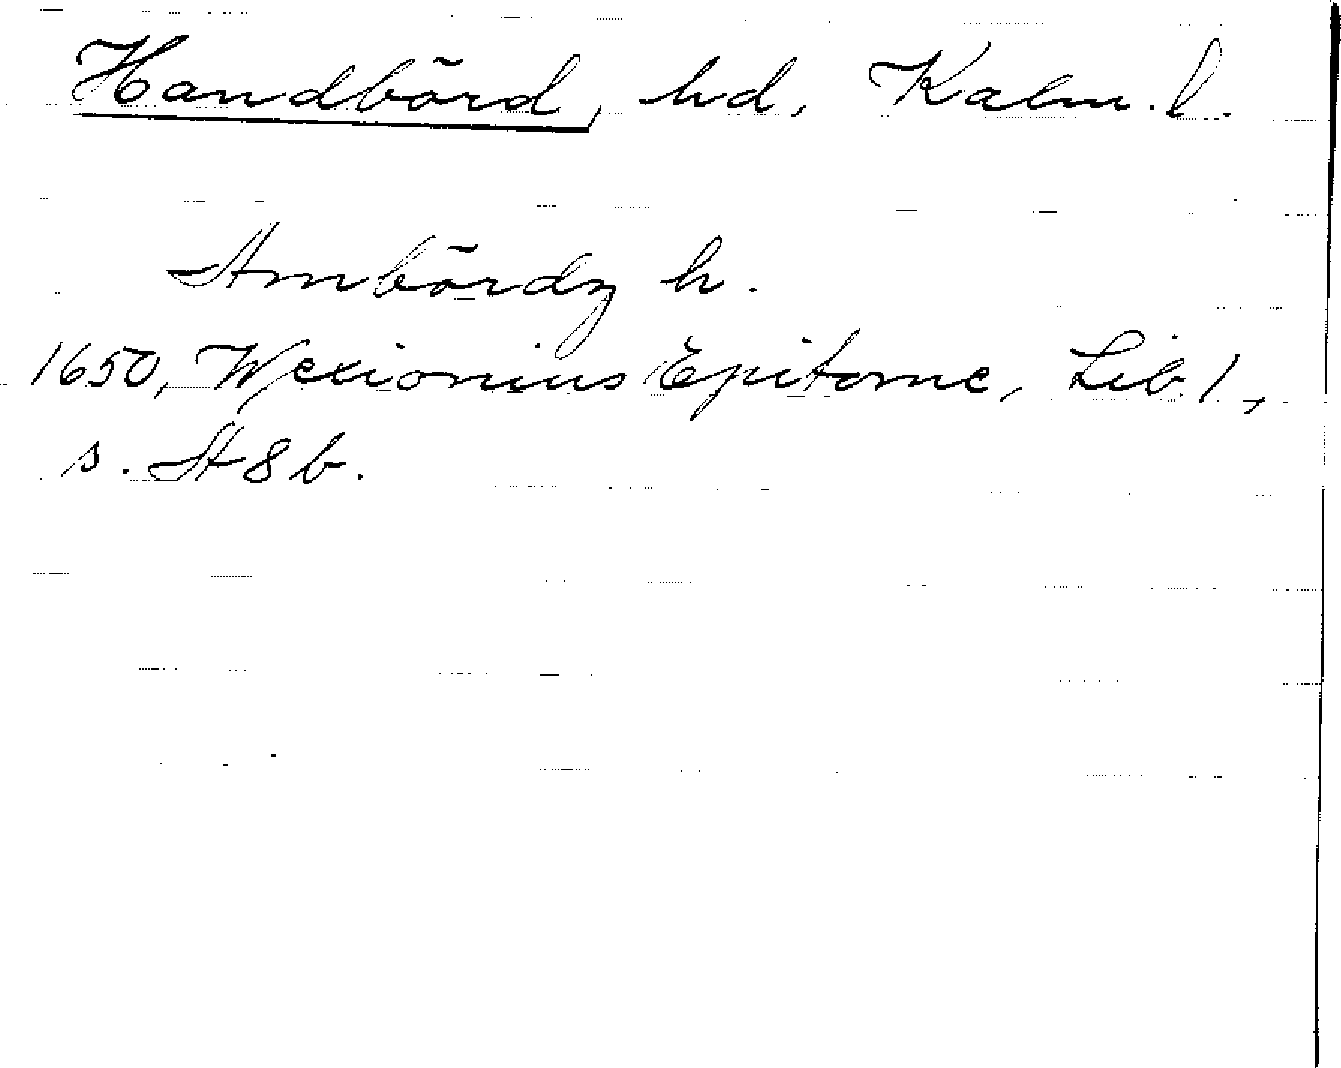 Handbörd, hd, Kalm. l.
Ambördz h.
1650, Wexionius Epitome, Lib. 1,
s. A8b.